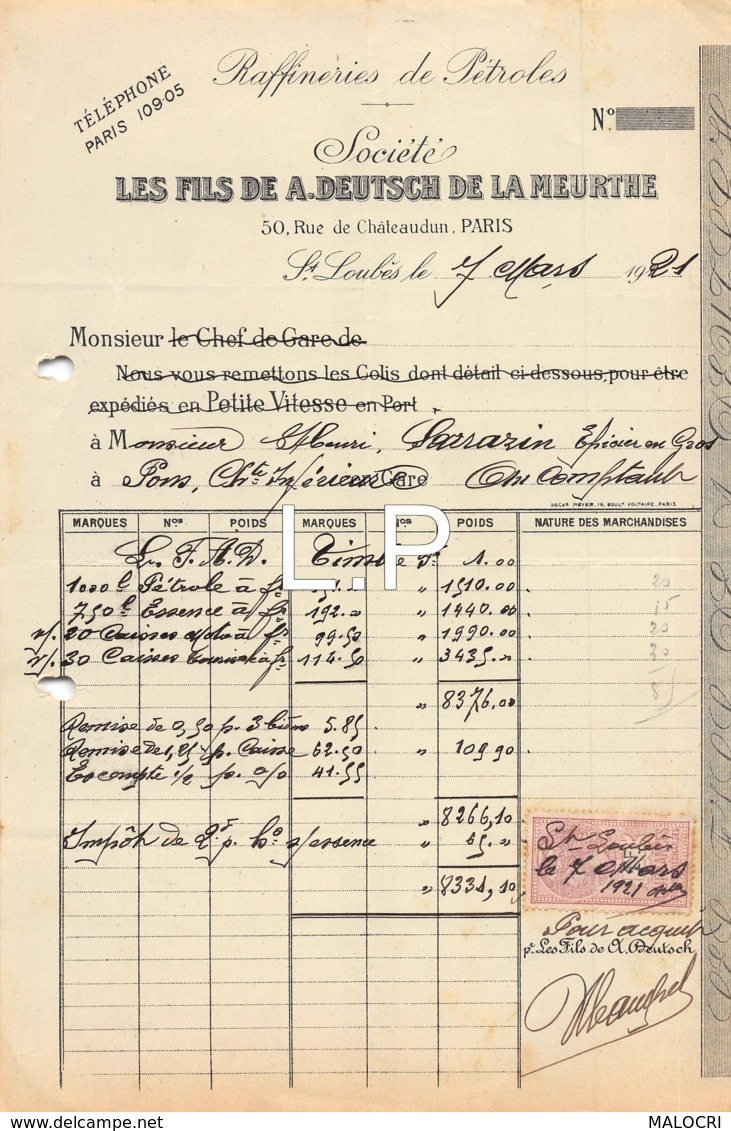 Raffineries de Pétroles
TÉLÉPHONE
PARIS 109-05
Nº
Société
LES FILS DE A. DEUTSCH DE LA MEURTHE
50, Rue de Châteaudun, PARIS
St Loubès le 7 Mars 1921
Monsieur le Chef de Gare de
Nous vous remettons les Colis dont détail ci-dessous, pour être
expédiés en Petite Vitesse en Port
à Monsieur Henri Sarrazin Epicier en Gros
à Pons, Chte Inférieure Gare Au Comptant
OSCAR MEYER, 16, BOULd VOLTAIRE, PARIS
MARQUES Nos POIDS MARQUES Nos POIDS NATURE DES MARCHANDISES
L. F. A. D. Timbre fr 1.00
1000 l Pétrole à fr " 1510.00 20
750 l Essence à fr 192.00 " 1440.00 15
v/. 20 Caisses à fr 99.50 " 1990.00 20
v/. 30 Caisses à fr 114.50 " 3435.00 30
" 8376.00 85
Remise de 0,50 p. 5.85
Remise de 1,25 p. Caisse 62.50 " 109.90
Escompte 1/2 p. o/o 41.55
" 8266,10
Impôt de p. s/essence " 65.00
" 8331,10
St Loubès
le 7 Mars
1921
Pour acquit
pr Les Fils de A. Deutsch
L.P
MALOCRI